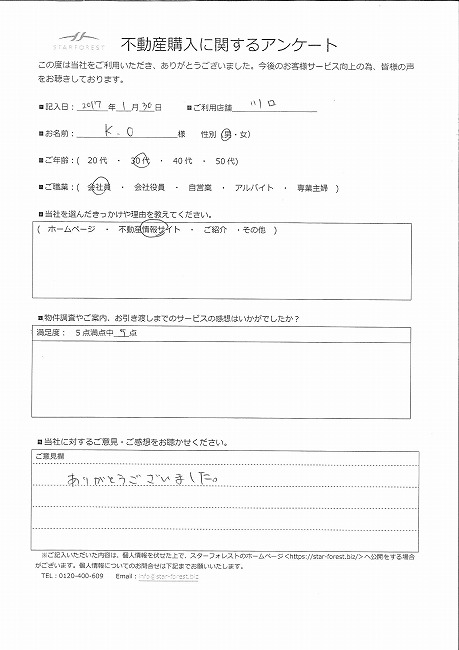 STARFOREST
不動産購入に関するアンケート
この度は当社をご利用いただき、ありがとうございました。今後のお客様サービス向上の為、皆様の声
をお聴きしております。
記入日： 2017 年 1 月 30 日 ご利用店舗 川口
お名前： K.O 様 性別（男・女）
ご年齢：( 20代 ・ 30代 ・ 40代 ・ 50代)
ご職業：( 会社員 ・ 会社役員 ・ 自営業 ・ アルバイト ・ 専業主婦 )
当社を選んだきっかけや理由を教えてください。
( ホームページ ・ 不動産情報サイト ・ ご紹介 ・その他 )
物件調査やご案内、お引き渡しまでのサービスの感想はいかがでしたか？
満足度： 5点満点中 5 点
当社に対するご意見・ご感想をお聴かせください。
ご意見欄
ありがとうございました。
※ご記入いただいた内容は、個人情報を伏せた上で、スターフォレストのホームページ<https://star-forest.biz/>へ公開をする場合
がございます。個人情報についてのお問合せは下記までお願いいたします。
TEL：0120-400-609 Email：info@star-forest.biz